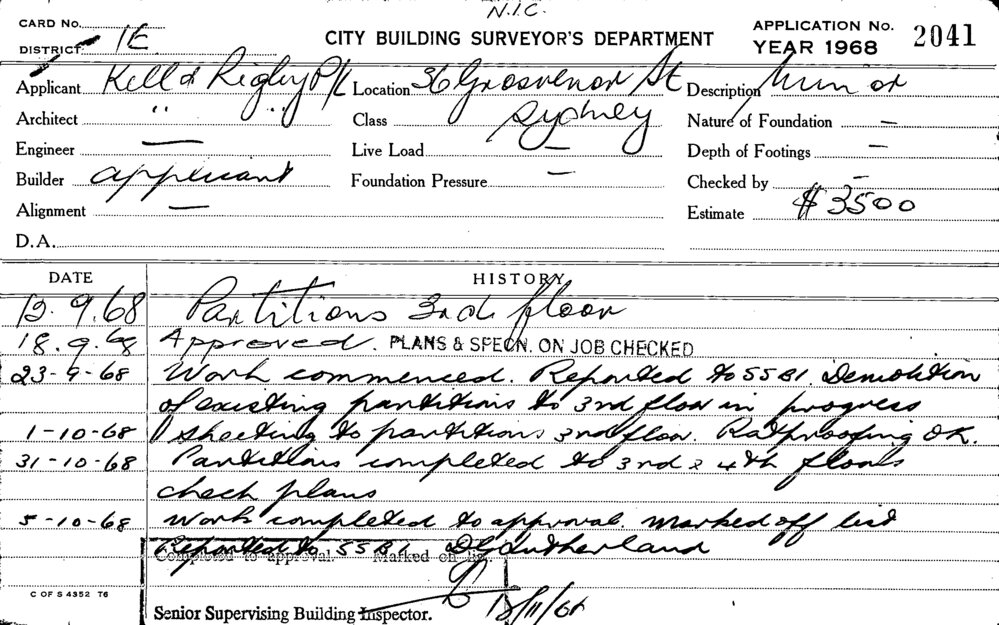 N.I.C.
CARD No.
DISTRICT 1E
CITY BUILDING SURVEYOR'S DEPARTMENT
APPLICATION No. 2041
YEAR 1968
Applicant Kell & Rigby P/L Location 36 Grosvenor St Description Minor
Architect " " Class Sydney Nature of Foundation —
Engineer — Live Load — Depth of Footings —
Builder applicant Foundation Pressure — Checked by —
Alignment — Estimate $3500
D.A.
DATE HISTORY
12.9.68 Partitions 3rd floor
18.9.68 Approved. PLANS & SPECN. ON JOB CHECKED
23-9-68 Work commenced. Reported to SSBI. Demolition
of existing partitions to 3rd floor in progress
1-10-68 Sheeting to partitions 3rd floor. Ratproofing OK.
31-10-68 Partitions completed to 3rd & 4th floors
check plans
5-10-68 Work completed to approval. Marked off list
Reported to SSBI. DG Sutherland
Completed to approval. Marked on list.
C OF S 4352 T6
Senior Supervising Building Inspector. 12/11/68